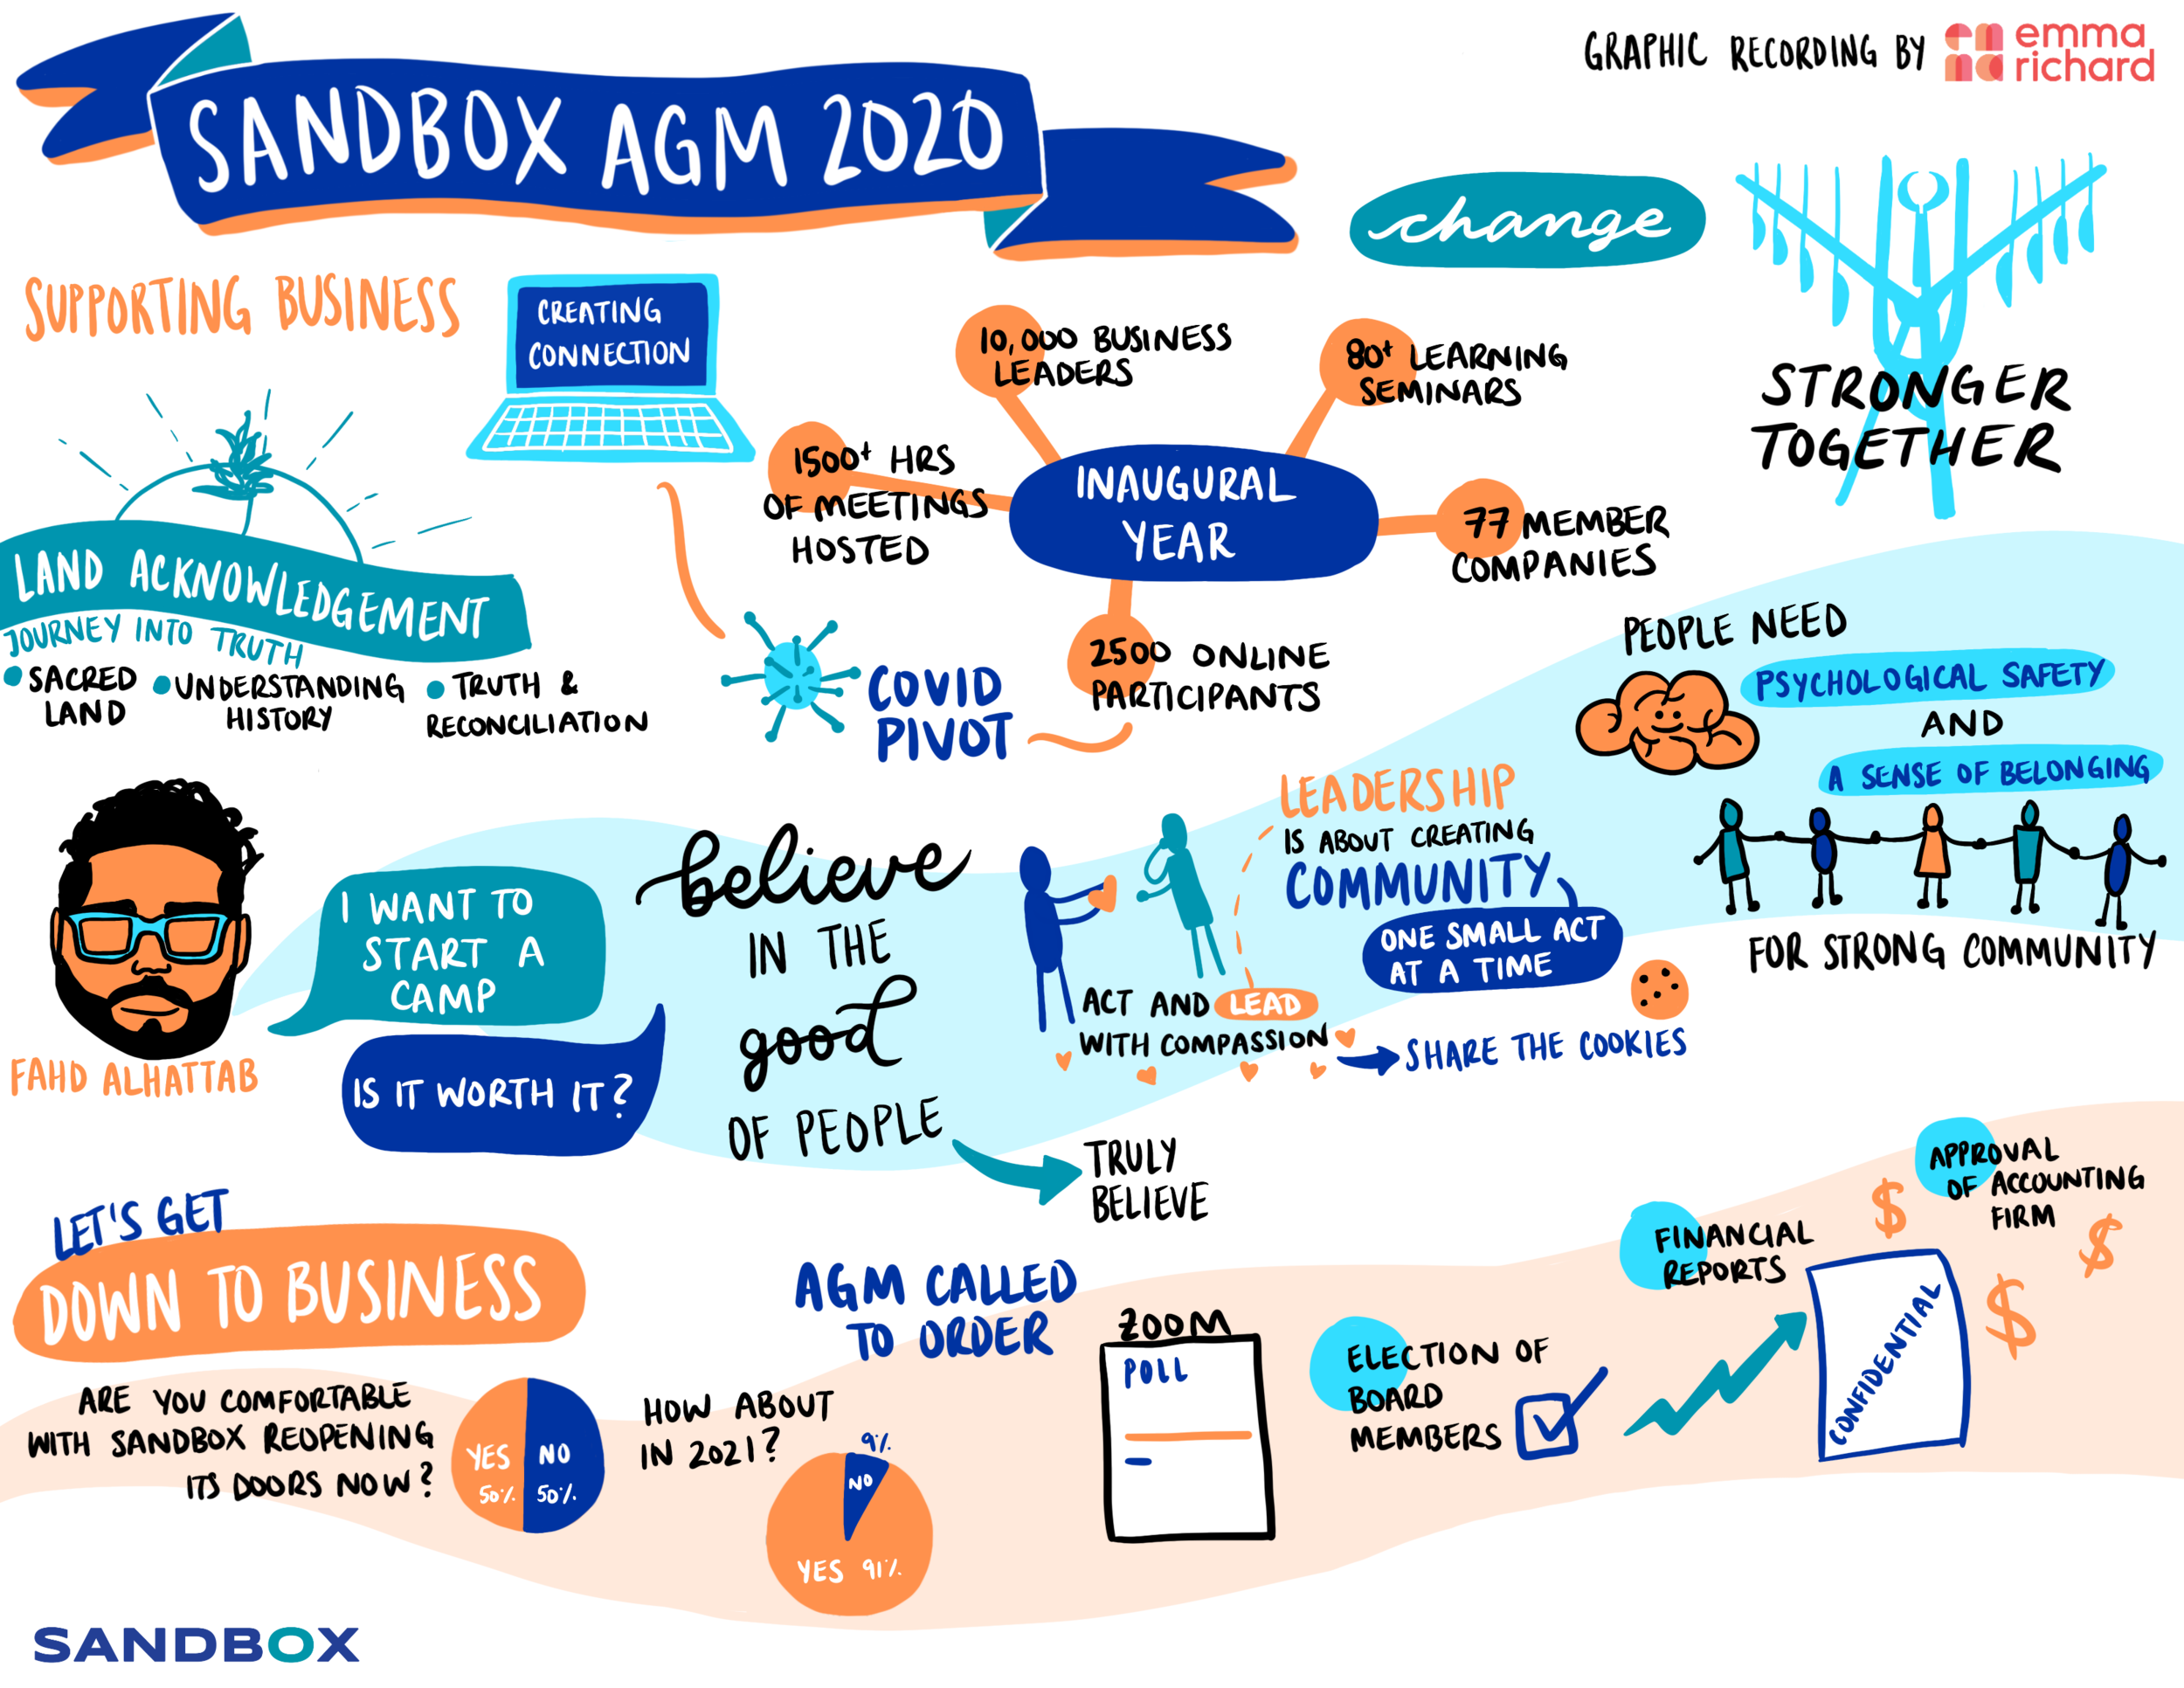 SANDBOX AGM 2020
GRAPHIC RECORDING BY
emma
richard
change
STRONGER
TOGETHER
SUPPORTING BUSINESS
CREATING
CONNECTION
LAND ACKNOWLEDGEMENT
JOURNEY INTO TRUTH
SACRED
LAND
UNDERSTANDING
HISTORY
TRUTH &
RECONCILIATION
INAUGURAL
YEAR
1500+ HRS
OF MEETINGS
HOSTED
10,000 BUSINESS
LEADERS
80+ LEARNING
SEMINARS
77 MEMBER
COMPANIES
2500 ONLINE
PARTICIPANTS
COVID
PIVOT
FAHD ALHATTAB
I WANT TO
START A
CAMP
IS IT WORTH IT?
believe
IN THE
good
OF PEOPLE
TRULY
BELIEVE
LEADERSHIP
IS ABOUT CREATING
COMMUNITY
ONE SMALL ACT
AT A TIME
ACT AND LEAD
WITH COMPASSION
SHARE THE COOKIES
PEOPLE NEED
PSYCHOLOGICAL SAFETY
AND
A SENSE OF BELONGING
FOR STRONG COMMUNITY
LET'S GET
DOWN TO BUSINESS
ARE YOU COMFORTABLE
WITH SANDBOX REOPENING
ITS DOORS NOW?
YES
50%
NO
50%
HOW ABOUT
IN 2021?
9%
NO
YES 91%
AGM CALLED
TO ORDER
ZOOM
POLL
ELECTION OF
BOARD
MEMBERS
FINANCIAL
REPORTS
CONFIDENTIAL
$
$
$
APPROVAL
OF ACCOUNTING
FIRM
SANDBOX